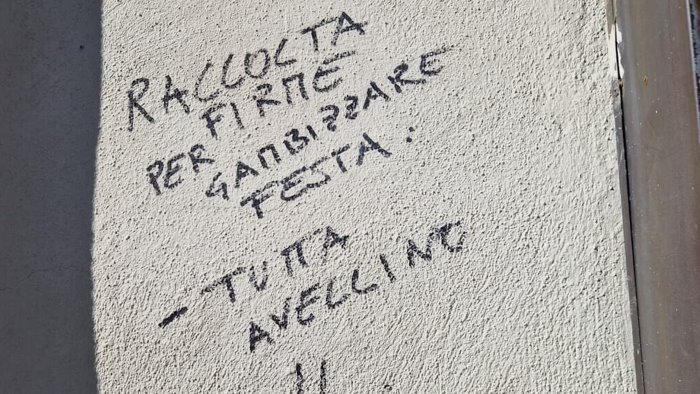 RACCOLTA
FIRME
PER GAMBIZZARE
FESTA:
- TUTTA
AVELLINO